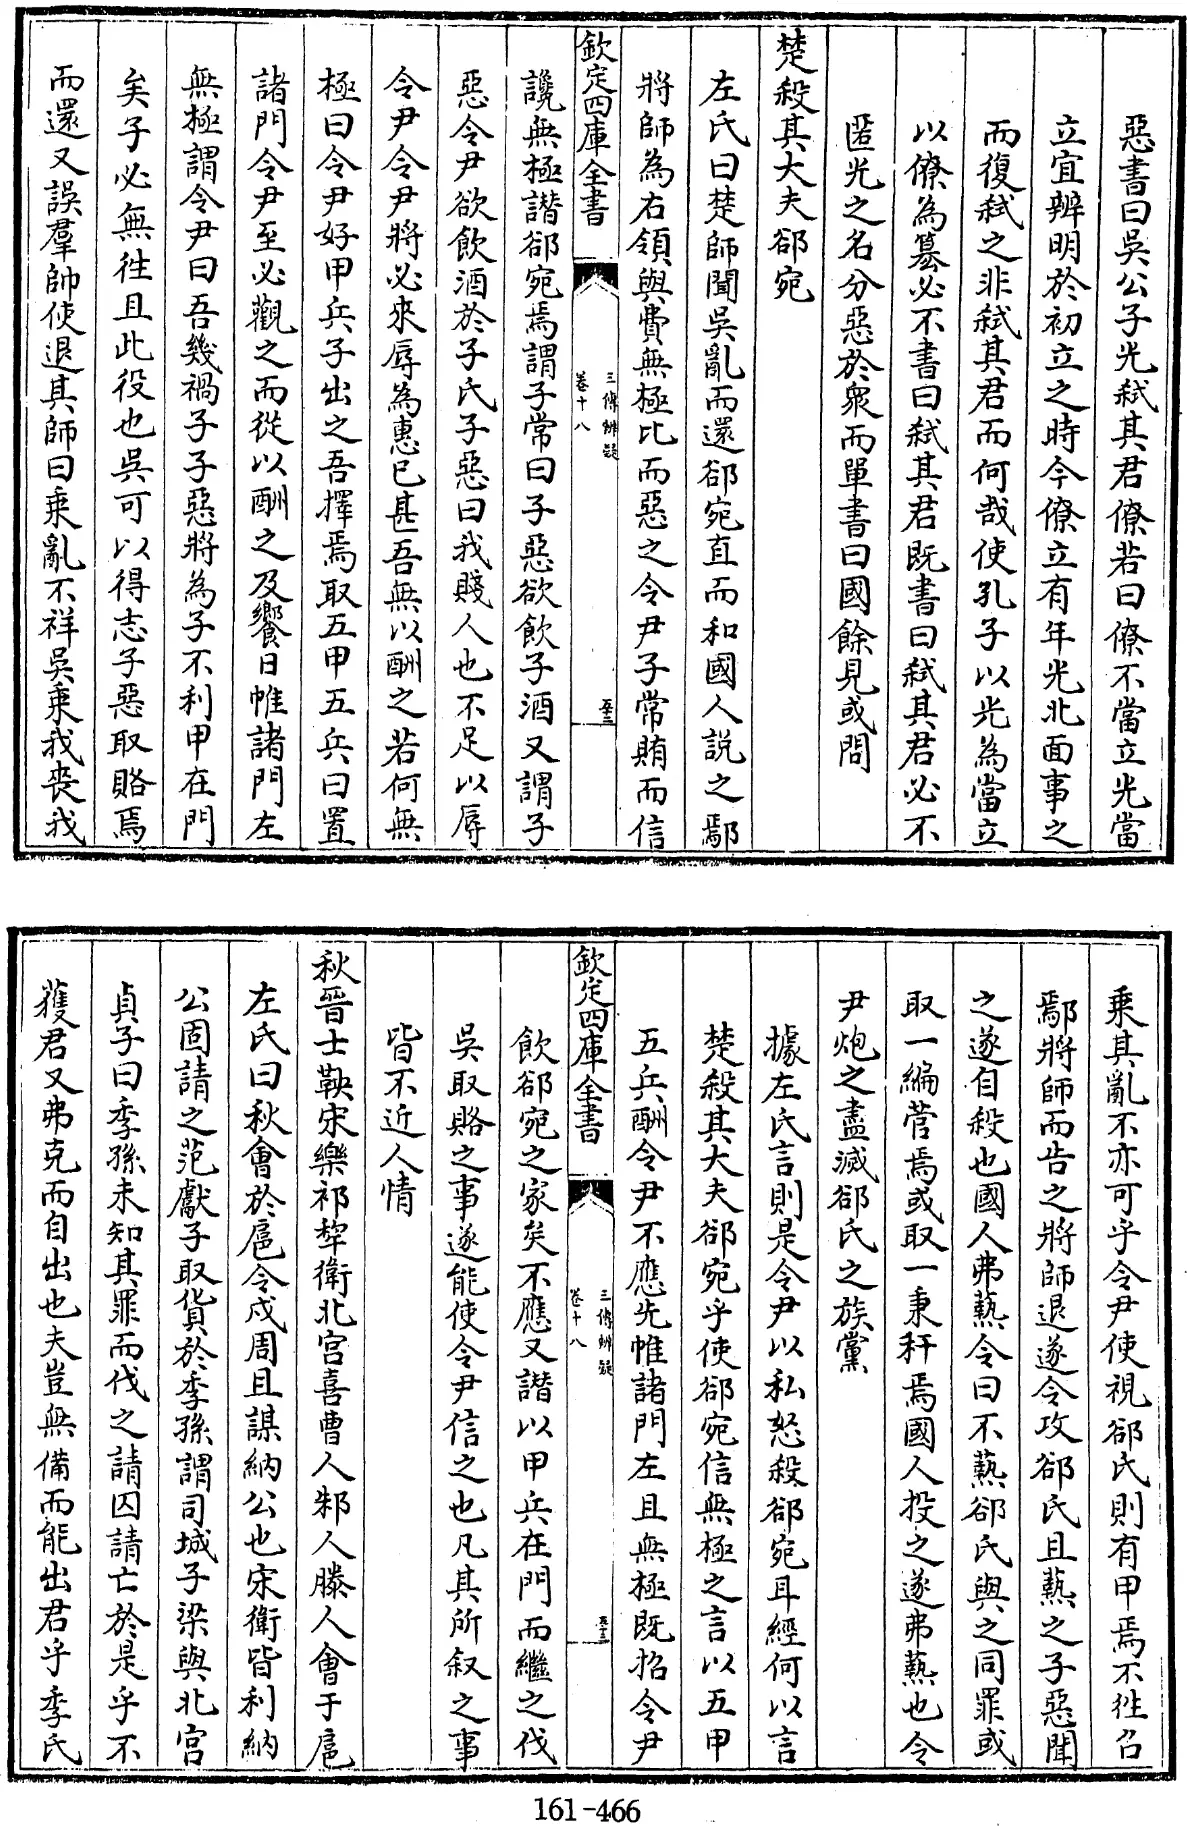 惡書曰吳公子光弑其君僚若曰僚不當立光當
立宜辨明於初立之時今僚立有年光北面事之
而復弑之非弑其君而何哉使孔子以光為當立
以僚為簒必不書曰弑其君既書曰弑其君必不
匿光之名分惡於衆而單書曰國餘見或問
楚殺其大夫郤宛
左氏曰楚師聞吳亂而還郤宛直而和國人說之鄢
將師為右領與費無極比而惡之令尹子常賄而信
欽定四庫全書
三傳辨疑
卷十八
讒無極譖郤宛焉謂子常曰子惡欲飲子酒又謂子
惡令尹欲飲酒於子氏子惡曰我賤人也不足以辱
令尹令尹將必來辱為惠已甚吾無以酬之若何無
極曰令尹好甲兵子出之吾擇焉取五甲五兵曰置
諸門令尹至必觀之而從以酬之及饗日帷諸門左
無極謂令尹曰吾幾禍子子惡將為子不利甲在門
矣子必無往且此役也吳可以得志子惡取賂焉
而還又誤羣帥使退其師曰乘亂不祥吳乘我喪我
乘其亂不亦可乎令尹使視郤氏則有甲焉不徃召
鄢將師而告之將師退遂令攻郤氏且爇之子惡聞
之遂自殺也國人弗爇令曰不爇郤氏與之同罪或
取一編菅焉或取一秉秆焉國人投之遂弗爇也令
尹炮之盡滅郤氏之族黨
據左氏言則是令尹以私怒殺郤宛耳經何以言
楚殺其大夫郤宛乎使郤宛信無極之言以五甲
五兵酬令尹不應先帷諸門左且無極既招令尹
欽定四庫全書
三傳辨疑
卷十八
飲郤宛之家矣不應又譖以甲兵在門而繼之伐
吳取賂之事遂能使令尹信之也凡其所叙之事
皆不近人情
秋晉士鞅宋樂祁犂衛北宮喜曹人邾人滕人會于扈
左氏曰秋會於扈令戍周且謀納公也宋衛皆利納
公固請之范獻子取貨於季孫謂司城子梁與北宮
貞子曰季孫未知其罪而伐之請囚請亡於是乎不
獲君又弗克而自出也夫豈無備而能出君乎季氏
161-466